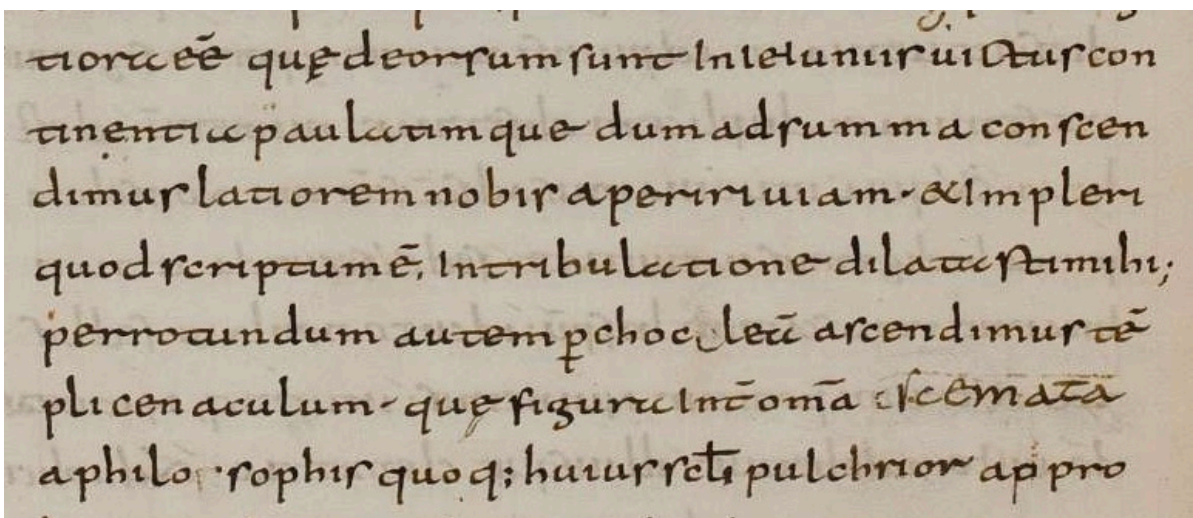 tiora eē quę deorsum sunt In ieiuniis uictus con
tinentia paulatimque dum ad summa conscen
dimus latiorem nobis aperiri uiam · & Impleri
quod scriptum ē, In tribulatione dilatasti mihi;
per rotundum autem choc leā ascendimus tē
pli cenaculum · quę figura Int̄ om̄a scemata
a philosophis quoq; huius sc̄li pulchrior appro